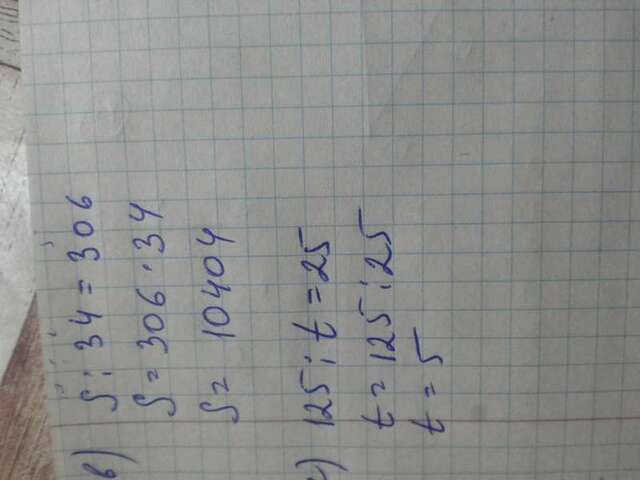 в) S : 34 = 306
S = 306 · 34
S = 10404
с) 125 : t = 25
t = 125 : 25
t = 5